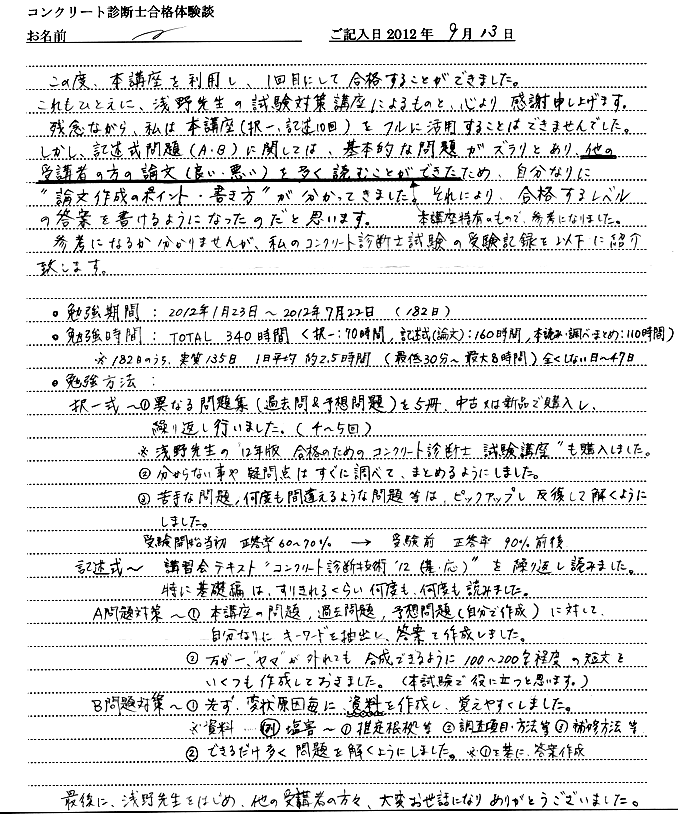 コンクリート診断士合格体験談
お名前 ご記入日 2012年 9月 13日
この度、本講座を利用し、1回目にして合格することができました。
これもひとえに、浅野先生の試験対策講座によるものと、心より感謝申し上げます。
残念ながら、私は本講座(択一、記述10回)をフルに活用することはできませんでした。
しかし、記述式問題(A・B)に関しては、基本的な問題がズラリとあり、他の
受講者の方の論文(良い・悪い)を多く読むことができたため、自分なりに
"論文作成のポイント・書き方"が分かってきました。それにより、合格するレベル
の答案を書けるようになったのだと思います。 本講座特有のもので、参考になりました。
参考になるか分かりませんが、私のコンクリート診断士試験の受験記録を以下に紹介
致します。
○勉強期間：2012年1月23日～2012年7月22日 (182日)
○勉強時間：TOTAL 340時間 (択一:70時間, 記述式(論文):160時間, 本読み・調べまとめ:110時間)
※182日のうち、実質135日 1日平均 約2.5時間 (最低30分～最大8時間) 全くしない日～47日
○勉強方法：
択一式～①異なる問題集(過去問&予想問題)を5冊、中古又は新品で購入し、
繰り返し行いました。(4～5回)
※浅野先生の"12年版 合格のためのコンクリート診断士 試験講座"も購入しました。
②分からない事や疑問点はすぐに調べて、まとめるようにしました。
③苦手な問題,何度も間違えるような問題等は、ピックアップし反復して解くように
しました。
受験開始当初 正答率60～70% → 受験前 正答率 90%前後
記述式～ 講習会テキスト"コンクリート診断技術'12(基・応)"を繰り返し読みました。
特に基礎編は、すりきれるくらい何度も、何度も読みました。
A問題対策～①本講座の問題,過去問題,予想問題(自分で作成)に対して、
自分なりにキーワードを抽出し、答案を作成しました。
②万が一、"ヤマ"が外れても合成できるように100～200字程度の短文を
いくつも作成しておきました。(本試験で役に立つと思います。)
B問題対策～①先ず、変状原因毎に、資料を作成し、覚えやすくしました。
※資料 例 塩害～①推定根拠等 ②調査項目・方法等 ③補修方法等
②できるだけ多く問題を解くようにしました。※①を基に、答案作成
最後に、浅野先生をはじめ、他の受講者の方々、大変お世話になりありがとうございました。